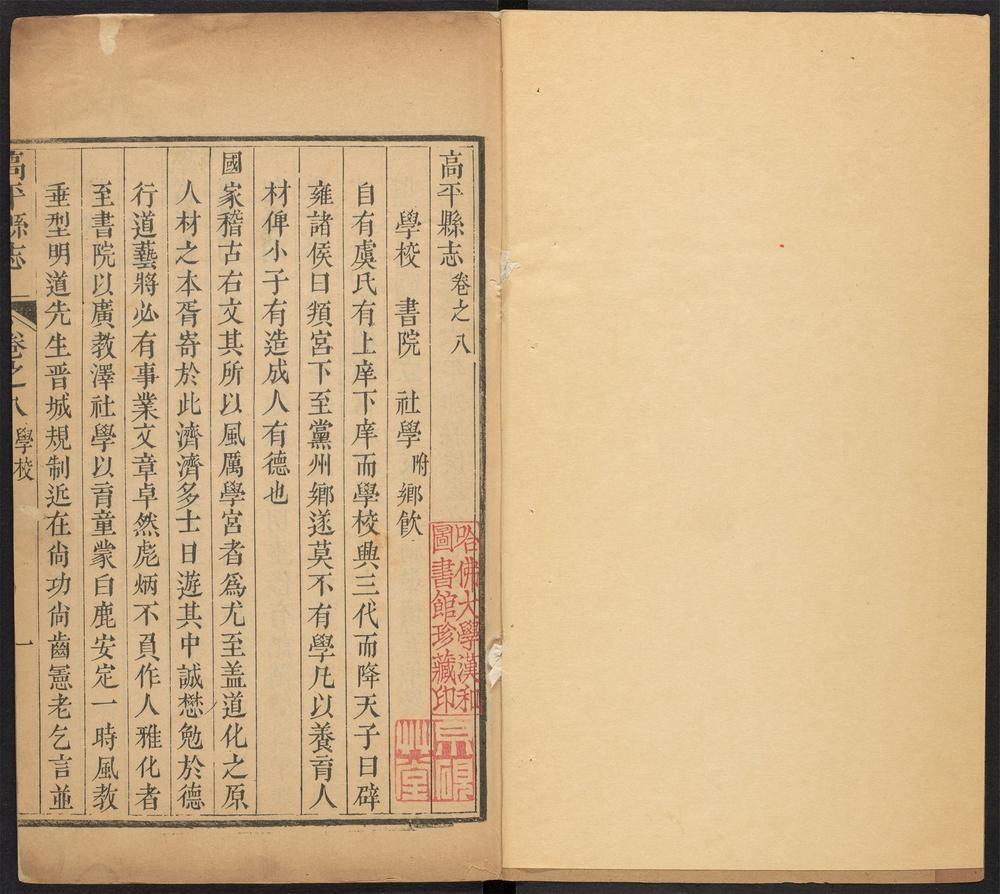 高平縣志卷之八
學校 書院 社學附鄉飲
自有虞氏有上庠下庠而學校興三代而降天子曰辟
雍諸侯曰頖宮下至黨州鄉遂莫不有學凡以養育人
材俾小子有造成人有德也
國家稽古右文其所以風厲學宮者爲尤至盖道化之原
人材之本胥寄於此濟濟多士日遊其中誠懋勉於德
行道藝將必有事業文章卓然彪炳不負作人雅化者
至書院以廣教澤社學以育童蒙白鹿安定一時風教
垂型明道先生晋城規制近在尙功尙齒憲老乞言並
高平縣志 卷之八 學校 一
哈佛大學漢和
圖書館珍藏印
艸堂